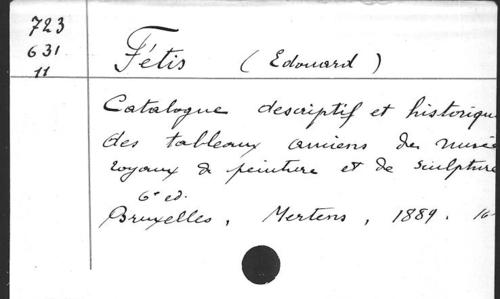 723
631
11
Fétis (Edouard)
Catalogue descriptif et historique
des tableaux anciens des musées
royaux de peinture et de sculpture
6e ed.
Bruxelles, Mertens, 1889. 16